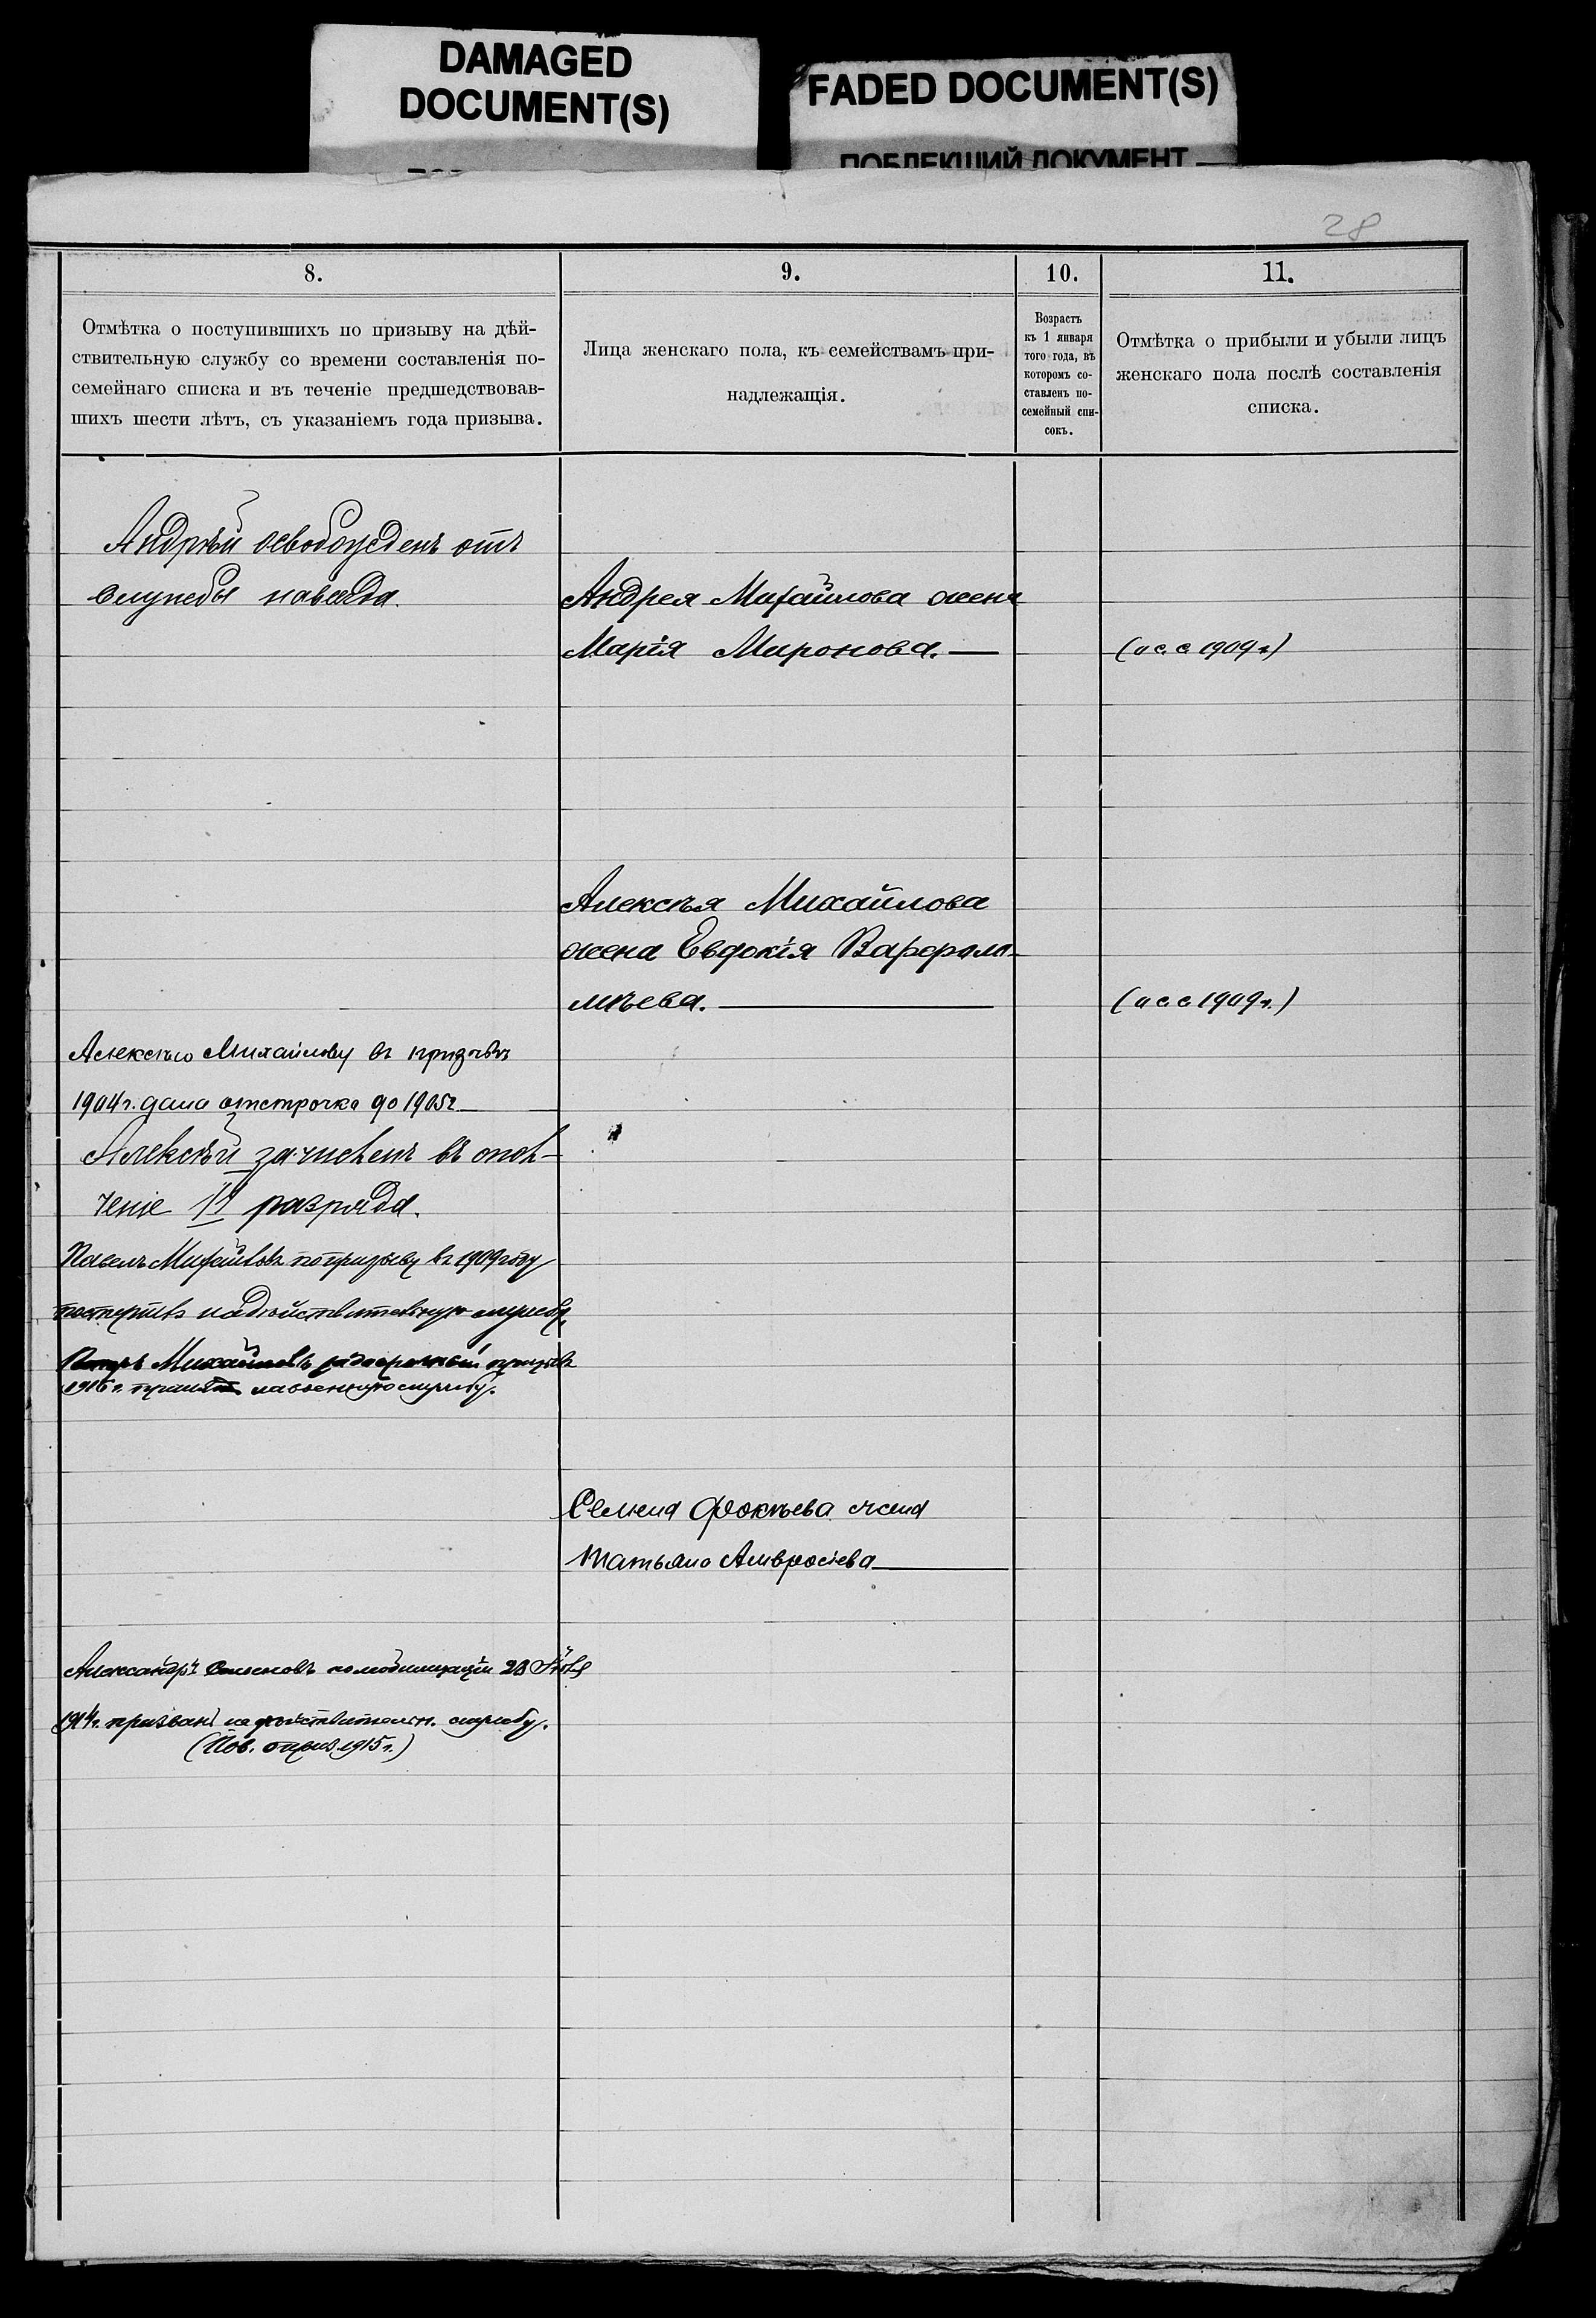 DAMAGED
DOCUMENT(S)
FADED DOCUMENT(S)
ПОБЛЕКШИЙ ДОКУМЕНТ
28
8.
Отмѣтка о поступившихъ по призыву на дѣй-
ствительную службу со времени составленія по-
семейнаго списка и въ теченіе предшедствовав-
шихъ шести лѣтъ, съ указаніемъ года призыва.
9.
Лица женскаго пола, къ семействамъ при-
надлежащія.
10.
Возрастъ
къ 1 января
того года, въ
которомъ со-
ставленъ по-
семейный спи-
сокъ.
11.
Отмѣтка о прибыли и убыли лицъ
женскаго пола послѣ составленія
списка.
Андрѣй освобожденъ отъ
службы навсегда.
Андрея Михайлова жена
Марія Миронова.
(п с. с 1909 г)
Алексѣя Михайлова
жена Евдокія Варфоло-
мѣева.
(п с. с 1909 г.)
Алексѣю Михайлову въ призывъ
1904 г. дана отсрочка до 1905 г.
Алексѣй зачисленъ въ опол-
ченіе II разряда.
Павелъ Михайловъ по призыву въ 1909 году
поступилъ на дѣйствительную службу.
Михайловъ въ досрочный призывъ
1916 г. принятъ на военную службу.
Семена Фокѣева жена
Татьяна Амвросіева
Александръ Семеновъ по мобилизаціи 23 Іюля
1914 г. призванъ на дѣйствительн. службу.
(Пов. 1915 г.)